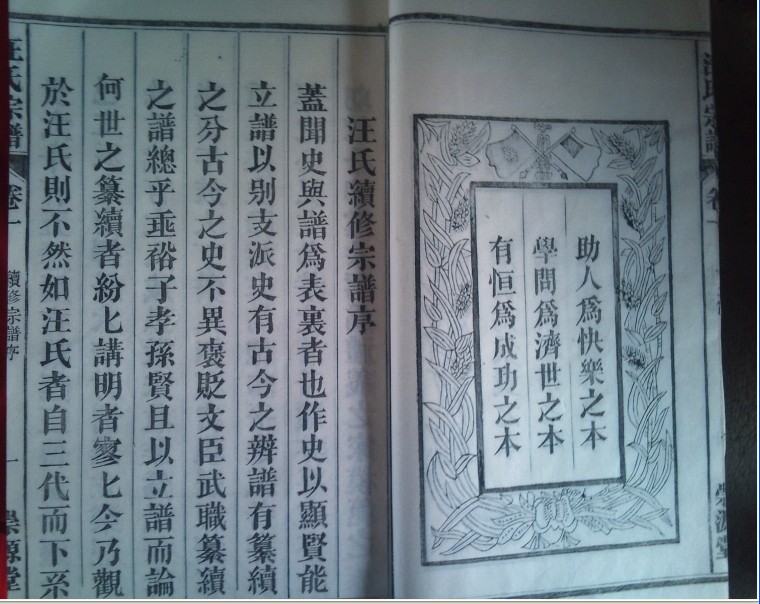 助人為快樂之本
學問為濟世之本
有恒為成功之本
汪氏續修宗譜序
蓋聞史與譜爲表裏者也作史以顯賢能
立譜以別支派史有古今之辨譜有纂續
之分古今之史不異褒貶文臣武職纂續
之譜總乎垂裕子孝孫賢且以立譜而論
何世之纂續者紛匕講明者寥匕今乃觀
於汪氏則不然如汪氏者自三代而下系
汪氏宗譜
卷一
續修宗譜序
一